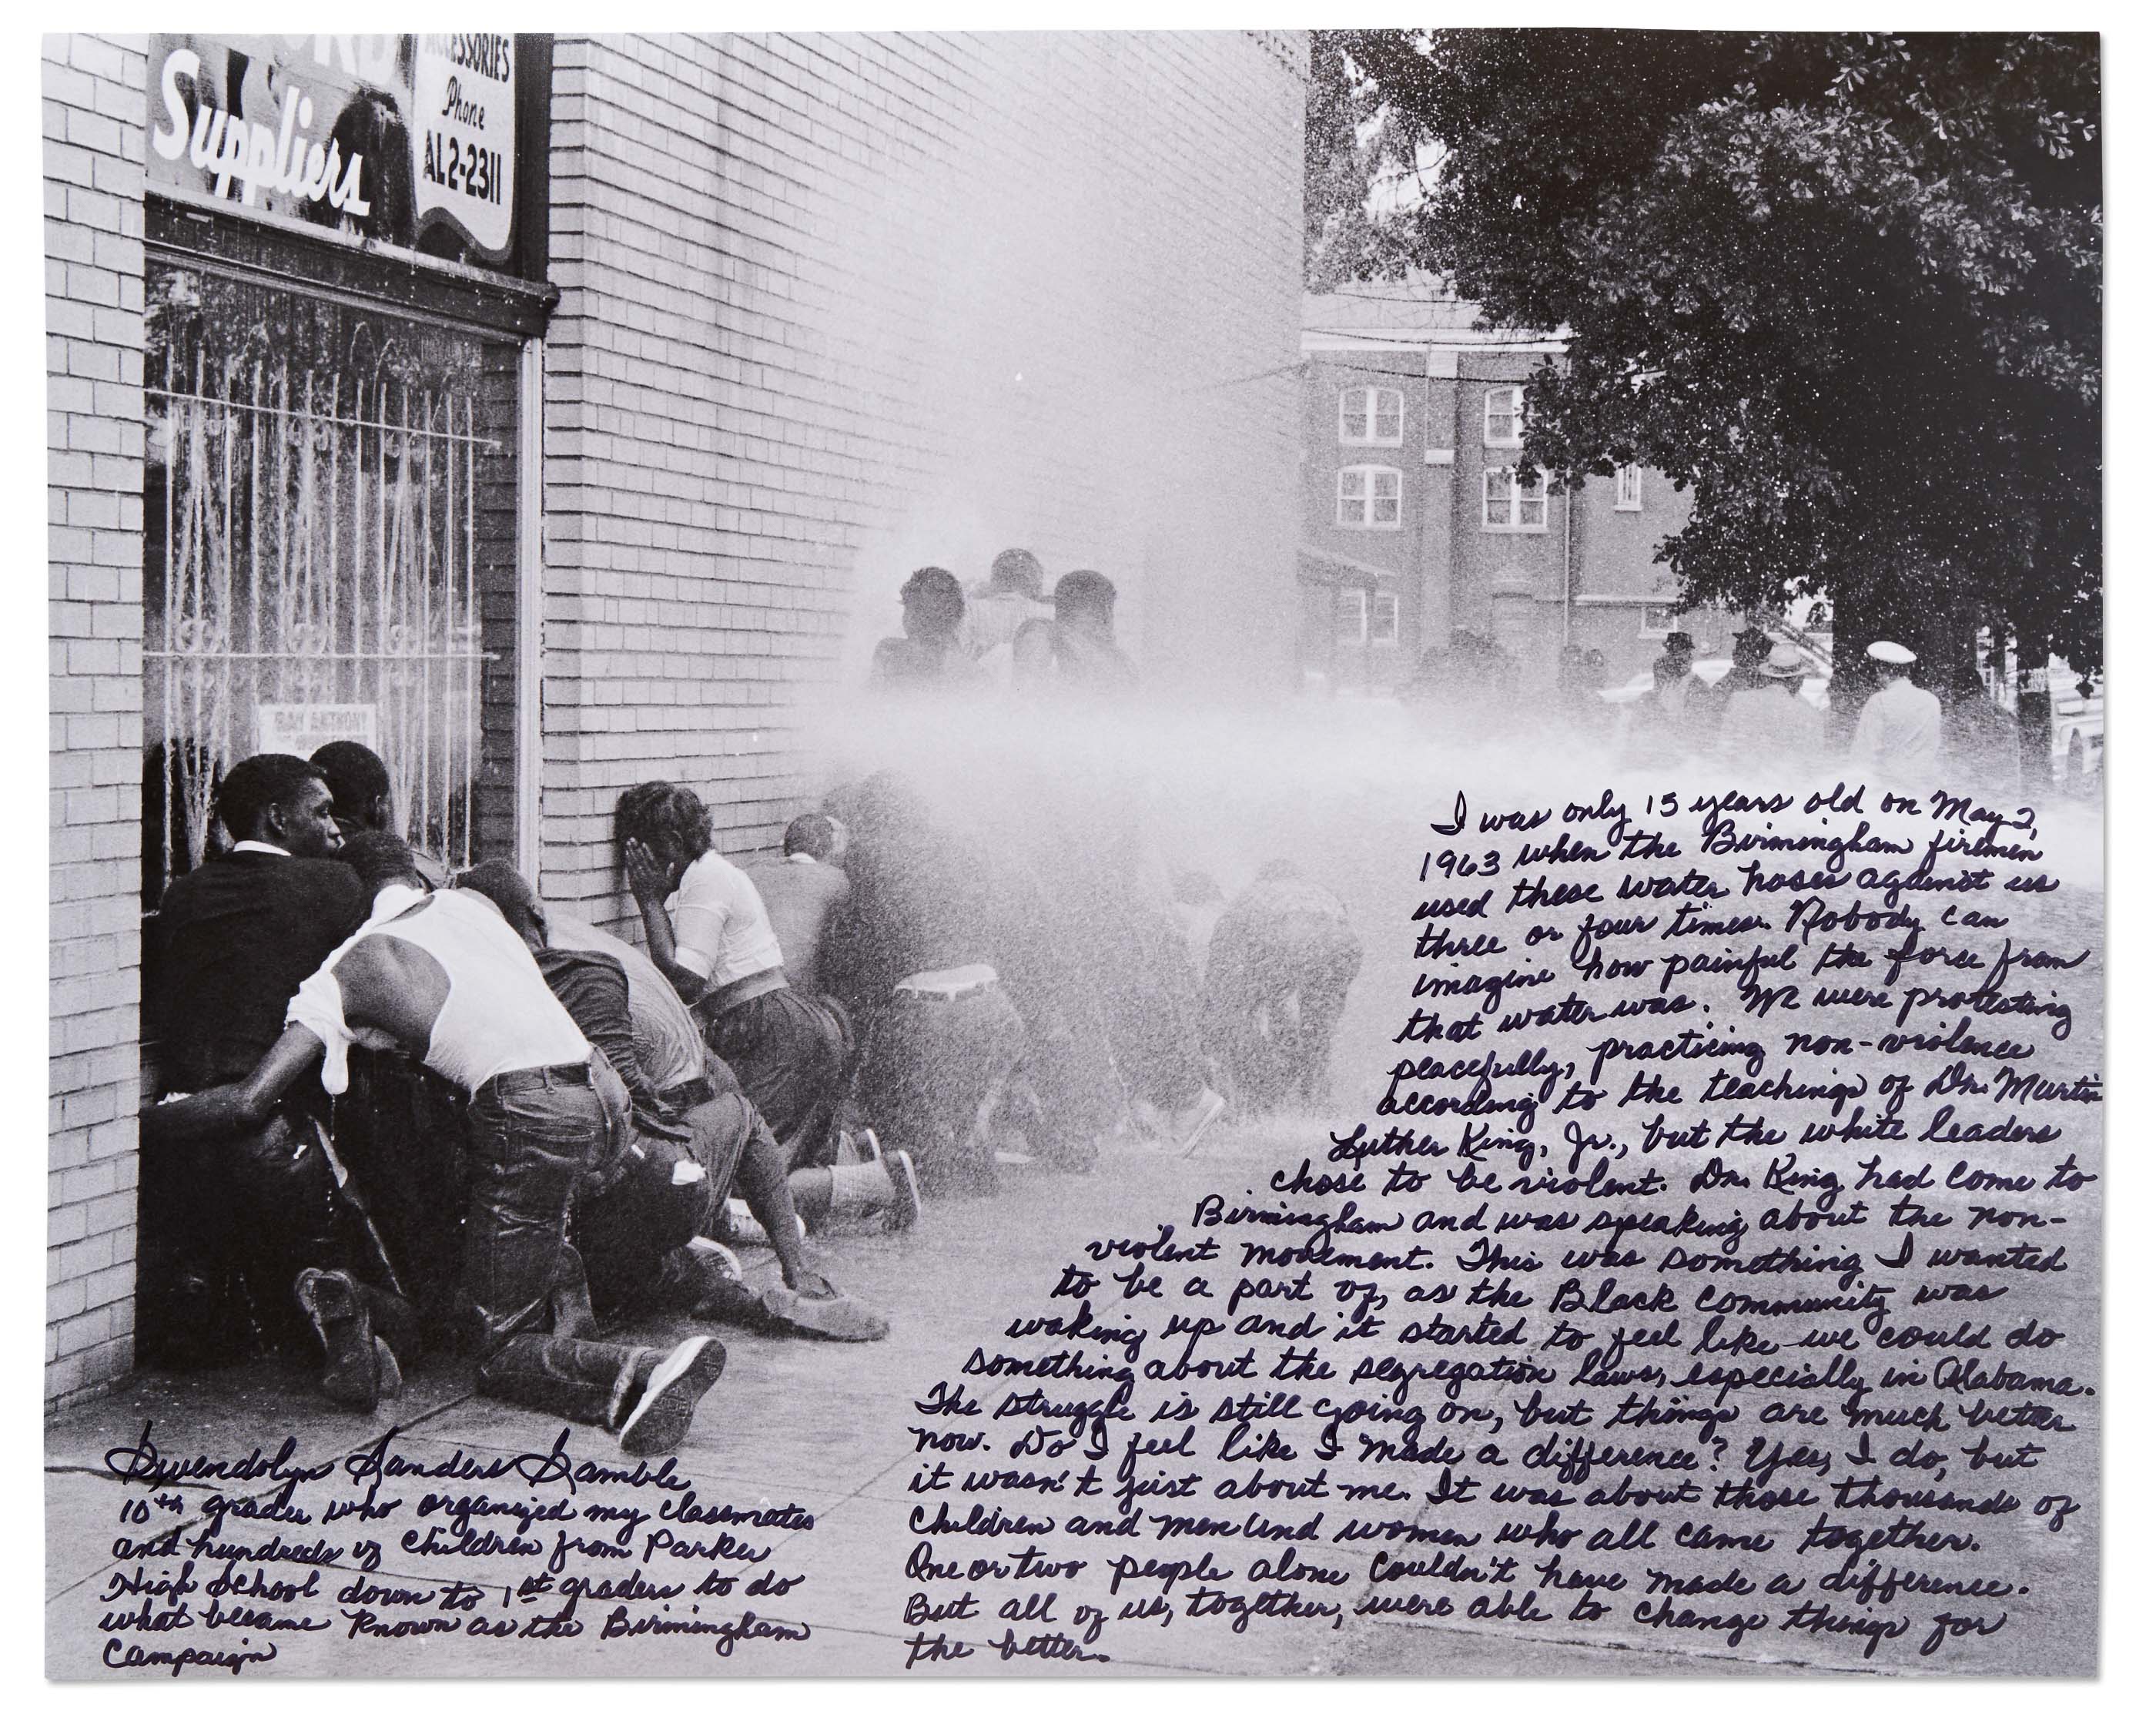 Suppliers
ACCESSORIES
Phone
AL2-2311
RAY ANTHONY
I was only 15 years old on May 2,
1963 when the Birmingham firemen
used these water hoses against us
three or four times. Nobody can
imagine how painful the force from
that water was. We were protesting
peacefully, practicing non-violence
according to the teachings of Dr. Martin
Luther King, Jr., but the white leaders
chose to be violent. Dr. King had come to
Birmingham and was speaking about the non-
violent movement. This was something I wanted
to be a part of, as the Black community was
waking up and it started to feel like we could do
something about the segregation laws, especially in Alabama.
The struggle is still going on, but things are much better
now. Do I feel like I made a difference? Yes, I do, but
it wasn't just about me. It was about those thousands of
children and men and women who all came together.
One or two people alone couldn't have made a difference.
But all of us, together, were able to change things for
the better.
Gwendolyn Sanders Gamble
10th grader who organized my classmates
and hundreds of children from Parker
High School down to 1st graders to do
what became known as the Birmingham
Campaign